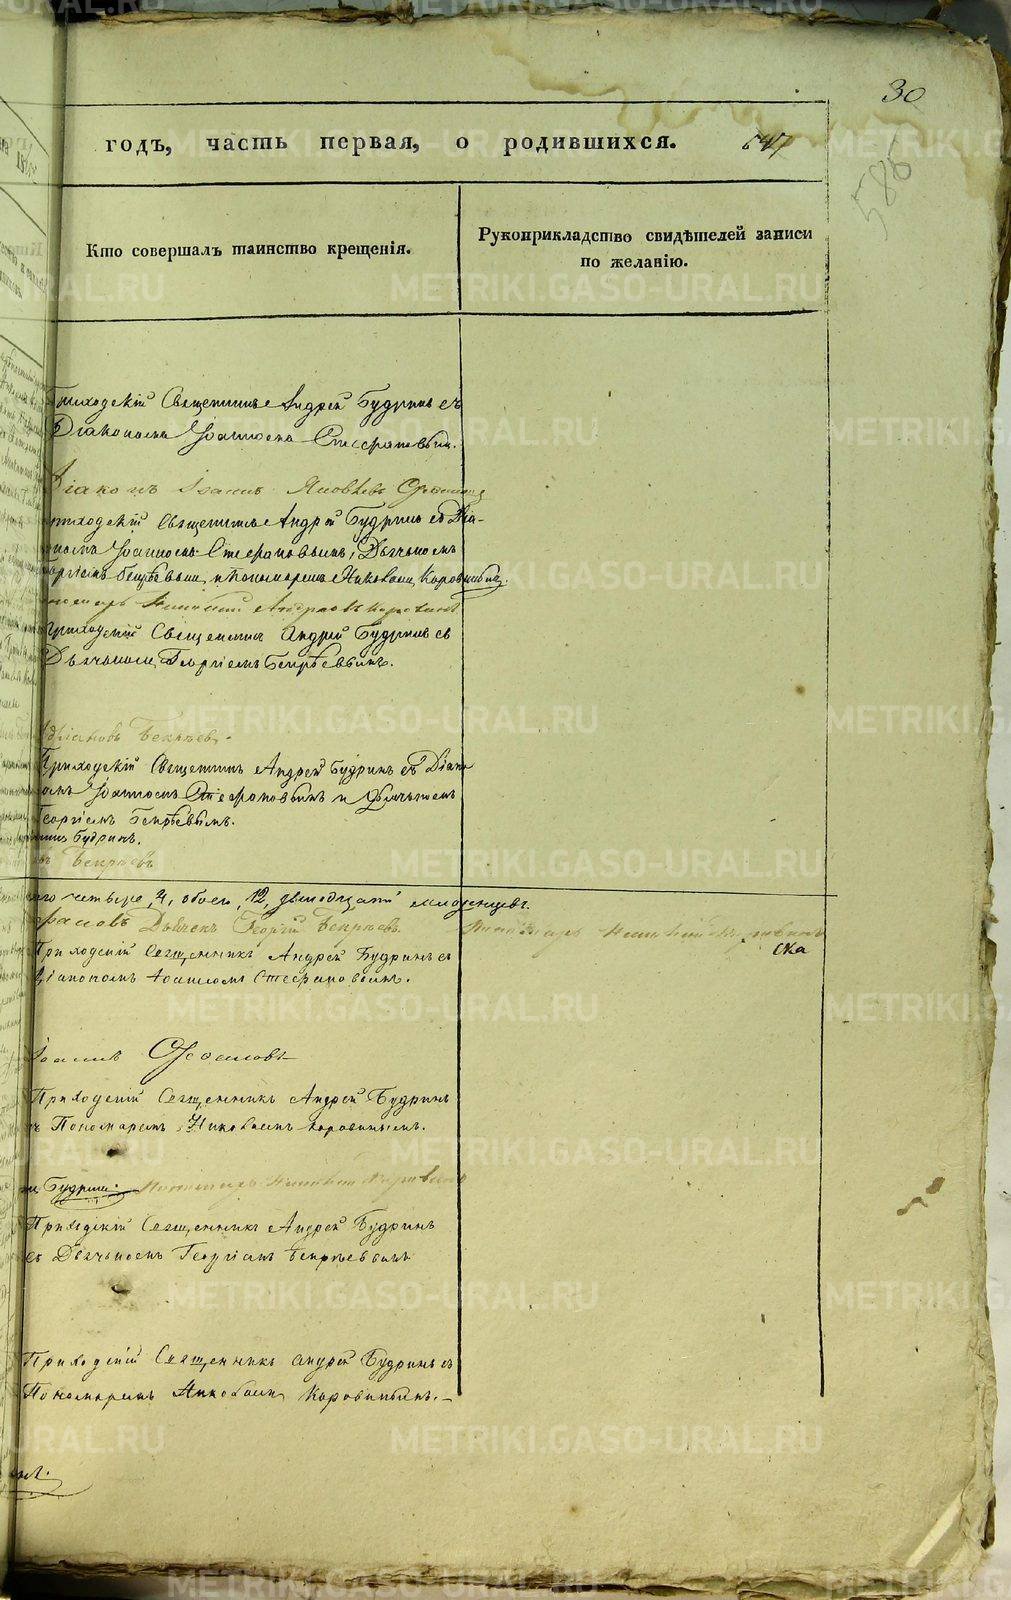 30
годъ, часть первая, о родившихся. 547
586
Кто совершалъ таинство крещенія.
Рукоприкладство свидѣтелей записи
по желанію.
Приходскій Священникъ Андрей Будринъ съ
Діакономъ Іоанномъ Стефановымъ.
Діаконъ Іоаннъ Яковлевъ
приходскій Священникъ Андрей Будринъ съ Діа-
кономъ Іоанномъ Стефановымъ, Дьячькомъ
Георгіемъ Бекрѣевымъ и Пономаремъ Николаемъ Коровинымъ.
Пономарь Николай Коровинъ
Приходскій Священникъ Андрей Будринъ съ
Дьячькомъ Георгіемъ Бекрѣевымъ.
Бекрѣевъ.
Приходскій Священникъ Андрей Будринъ съ Діако
номъ Іоанномъ Стефановымъ и Дьячькомъ
Георгіемъ Бекрѣевымъ.
Будринъ.
Бекрѣевъ
четыре, 4, обоего, 12, двенадцать младенцевъ.
Дьячекъ Георгій Бекрѣевъ Пономарь Николай Коровинъ
ска
Приходскій Священникъ Андрей Будринъ съ
Діакономъ Іоанномъ Стефановымъ.
Іоаннъ
Приходскій Священникъ Андрей Будринъ
съ Пономаремъ Николаемъ Коровинымъ.
Будринъ. Пономарь Николай Коровинъ
Приходскій Священникъ Андрей Будринъ
съ Дьячькомъ Георгіемъ Бекрѣевымъ
Приходскій Священникъ Андрей Будринъ съ
Пономаремъ Николаемъ Коровинымъ.
METRIKI.GASO-URAL.RU